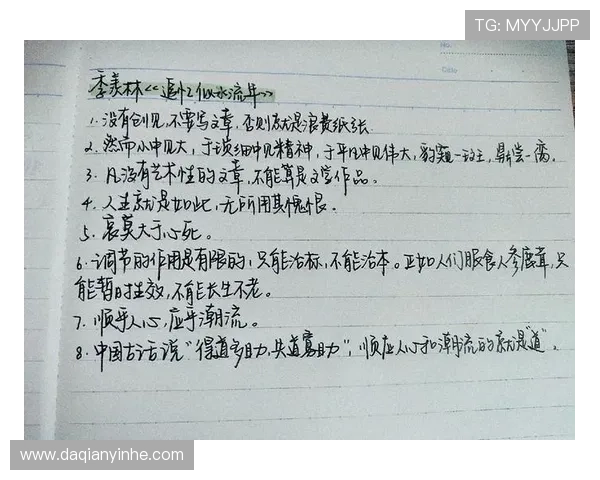 TG: MYYJJPP
No.
Date
季羡林《追忆似水流年》
1. 没有创见,不要写文章,否则就是浪费纸张.
2. 然而小中见大,于琐细中见精神,于平凡中见伟大,豹窥一斑,鼎尝一脔.
3. 凡没有艺术性的文章,不能算是文学作品。
4. 人生就是如此,无所用其愧恨。
5. 哀莫大于心死。
6. 调节的作用是有限的,只能治标,不能治本。正如人们服食人参鹿茸,只
能暂时生效,不能长生不老。
7. 顺乎人心,应乎潮流。
8. 中国古话说"得道多助,失道寡助",顺应人心和潮流的就是"道"。
www.daqianyinhe.com